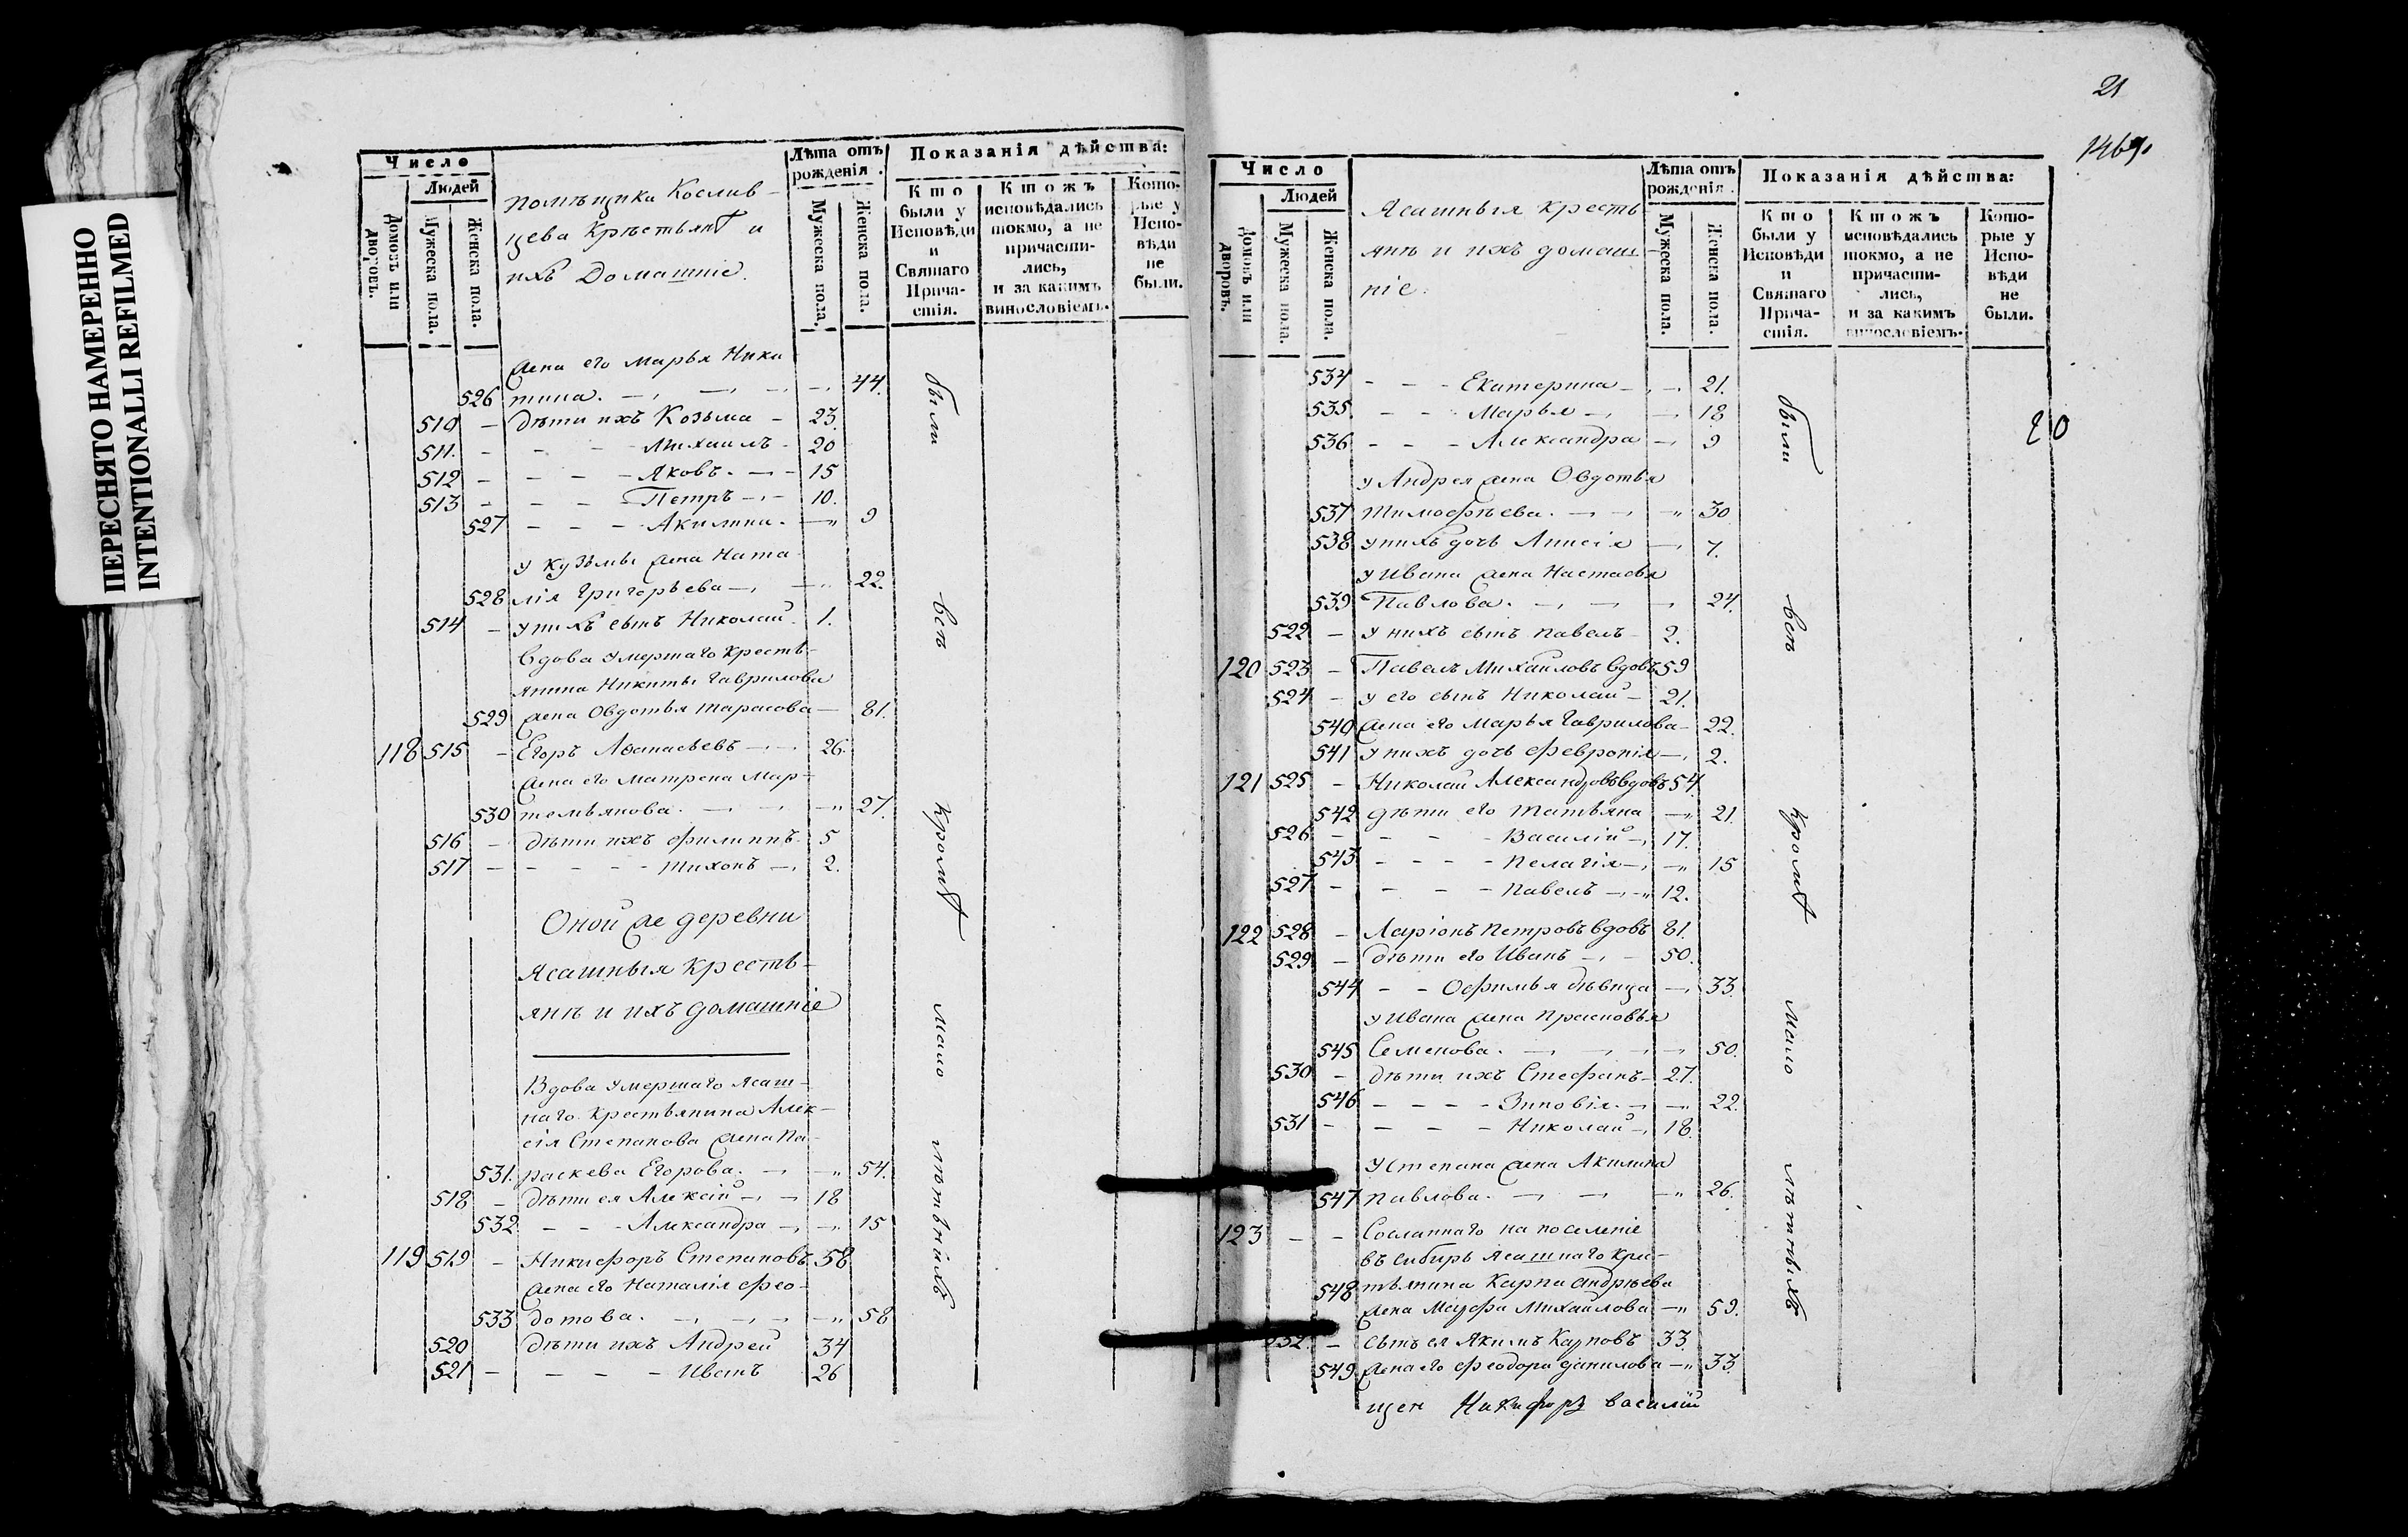 ПЕРЕСНЯТО НАМЕРЕННО
INTENTIONALLI REFILMED
Число
Людей
Домовъ или дворовъ.
Мужеска пола.
Женска пола.
помѣщика Кослив-
цева Крѣстьянъ и
ихъ Домашніе.
Лѣта отъ рожденія.
Мужеска пола.
Женска пола.
Показанія дѣйства:
Кто были у Исповѣди и Святаго Причастія.
Ктожъ исповѣдались токмо, а не причастились, и за какимъ винословіемъ.
Которые у Исповѣди не были.
жена его Марья Ники
526 тина. 44.
510 - дѣти ихъ Козьма - 23.
511. - - - Михаилъ - 20
512 - - - - Яковъ. - 15
513 - - - - Петръ - 10.
527 - - - Акилина. - 9
у Кузьмы жена Ната
528 лія Григорьева - 22.
514 - у нихъ сынъ Николай. 1.
Вдова умершаго кресть-
янина Никиты Гаврилова
529 жена Овдотья Тарасова - 81.
118 515 - Егоръ Аѳанасьевъ - 26.
жена его Матрена Мар-
530 темьянова. - 27.
516 - дѣти ихъ Филиппъ. 5
517 - - - - Тихонъ - 2.
Оной же деревни
Ясашныя Кресть-
янъ и ихъ домашніе
Вдова умершаго ясаш-
наго крестьянина Алек-
сія Степанова жена Па-
531. раскева Егорова. - 54.
518 - дѣти ея Алексій - 18
532 - - - Александра - 15
119 519 - Никифоръ Степановъ 58
жена его Наталія Фео-
533 дотова. - 58
520 дѣти ихъ Андрей 34
521 - - - - Иванъ 26
были
всѣ
Кромѣ
мало
лѣтныйхъ
21
1469.
Число
Людей
Домовъ или дворовъ.
Мужеска пола.
Женска пола.
Ясашныя кресть
янъ и ихъ домаш-
ніе.
Лѣта отъ рожденія.
Мужеска пола.
Женска пола.
Показанія дѣйства:
Кто были у Исповѣди и Святаго Причастія.
Ктожъ исповѣдались токмо, а не причастились, и за какимъ винословіемъ.
Которые у Исповѣди не были.
534 - - - Екатерина - 21.
535. - - - Марья - 18
536 - - - Александра - 9
у Андрея жена Овдотья
537 Тимофѣева. - 30
538 у нихъ дочь Анисія - 7.
у Ивана жена Настасья
539 Павлова. - 24.
522 - у нихъ сынъ Павелъ - 2.
120 523 - Павелъ Михайловъ вдовъ 59
524 - у его сынъ Николай - 21.
540 жена его Марья Гаврилова - 22.
541 у нихъ дочь Февронія - 2.
121 525 - Николай Александровъ вдовъ 54.
542 дѣти его Татьяна - 21.
526 - - - - Василій - 17.
543 - - - - Пелагія - 15
527 - - - - Павелъ - 12.
122 528 - Ларіонъ Петровъ вдовъ 81.
529 - дѣти его Иванъ - 50.
544 - - Офимья дѣвица - 33.
у Ивана жена Прасковья
545 Семенова. - 50.
530 - дѣти ихъ Стефанъ - 27.
546 - - - - Зиновія. - 22.
531 - - - - Николай - 18.
у Степана жена Акилина
547 Павлова. - 26.
123 - - Сосланнаго на поселеніе
въ Сибирь ясашнаго крес-
548 тьянина Карпа Андрѣева
жена Марфа Михайлова - 59.
532. - сынъ ея Якимъ Карповъ 33.
549 жена его Феодора Данилова - 33.
20
были
всѣ
Кромѣ
мало
лѣтныхъ
щен Никифоръ Василій